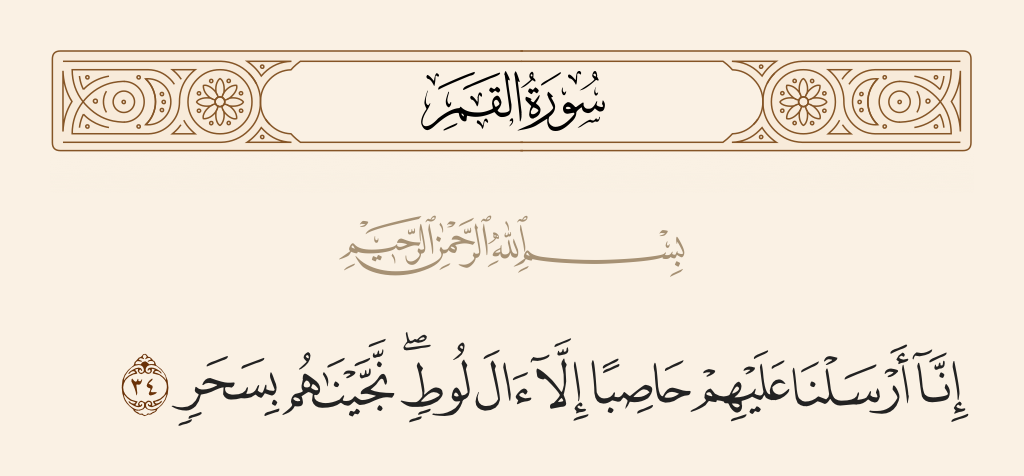 سُورَةُ القَمَرِ
بِسْمِ ٱللَّهِ ٱلرَّحْمَٰنِ ٱلرَّحِيمِ
إِنَّآ أَرْسَلْنَا عَلَيْهِمْ حَاصِبًا إِلَّآ ءَالَ لُوطٍۖ نَّجَّيْنَٰهُم بِسَحَرٍ ٣٤